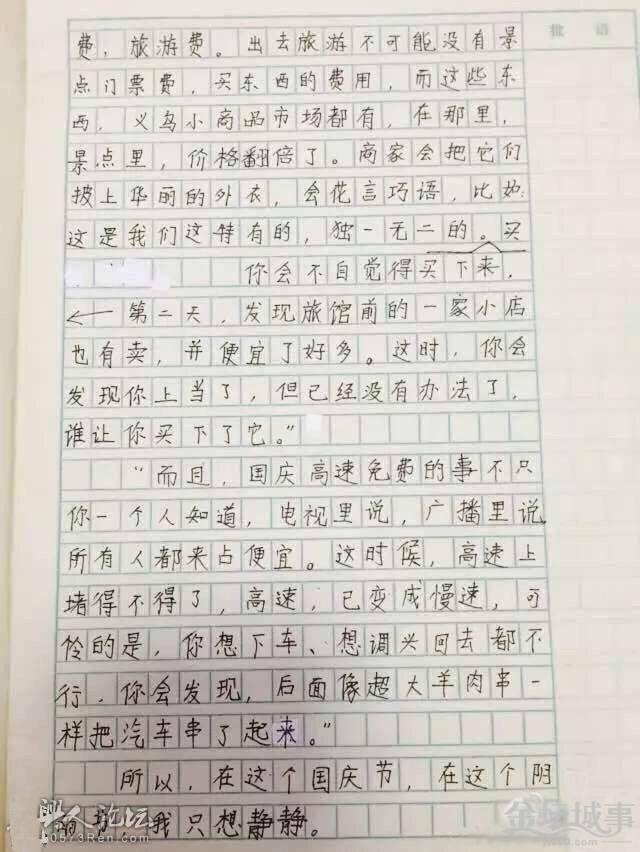 批语
费，旅游费。出去旅游不可能没有景
点门票费，买东西的费用，而这些东
西，义乌小商品市场都有，在那里，
景点里，价格翻倍了。商家会把它们
披上华丽的外衣，会花言巧语，比如：
这是我们这特有的，独一无二的。买
你会不自觉得买下来，
第二天，发现旅馆前的一家小店
也有卖，并便宜了好多。这时，你会
发现你上当了，但已经没有办法了，
谁让你买下了它。”
“而且，国庆高速免费的事不只
你一个人知道，电视里说，广播里说
所有人都来占便宜。这时候，高速上
堵得不得了，高速，已变成慢速，可
伶的是，你想下车、想调头回去都不
行。你会发现，后面像超大羊肉串一
样把汽车串了起来。”
所以，在这个国庆节，在这个阴
我只想静静。
聊人论坛
0573Ren.com
城事